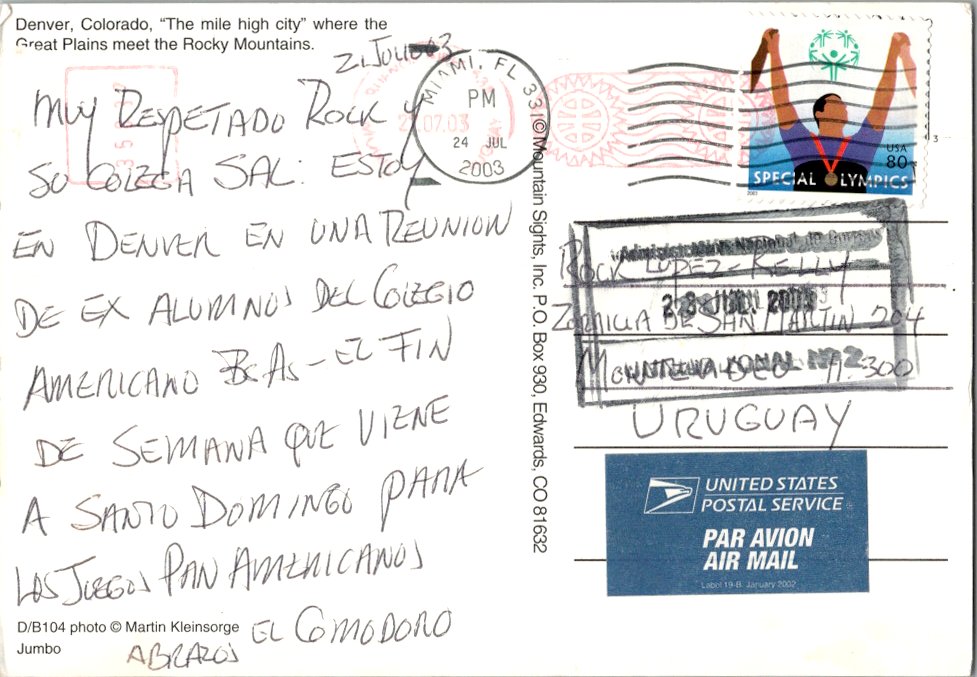 Denver, Colorado, "The mile high city" where the
Great Plains meet the Rocky Mountains.
21 JULIO 03
MUY RESPETADO ROCK Y
SU COLEGA SAL: ESTOY
EN DENVER EN UNA REUNION
DE EX ALUMNOS DEL COLEGIO
AMERICANO BsAs - EL FIN
DE SEMANA QUE VIENE
A SANTO DOMINGO PARA
LOS JUEGOS PAN AMERICANOS
EL COMODORO
ABRAZOS
D/B104 photo © Martin Kleinsorge
Jumbo
© Mountain Sights, Inc. P.O. Box 930, Edwards, CO 81632
MIAMI, FL 331
PM
24 JUL
2003
07.03
USA
80
SPECIAL OLYMPICS
2003
Administración Nacional de Correos
28 JUL. 2003
ROCK LOPEZ-KELLY
ZORRILLA DE SAN MARTIN 204
MONTEVIDEO 11.300
URUGUAY
UNITED STATES
POSTAL SERVICE
PAR AVION
AIR MAIL
Label 19-B, January 2002